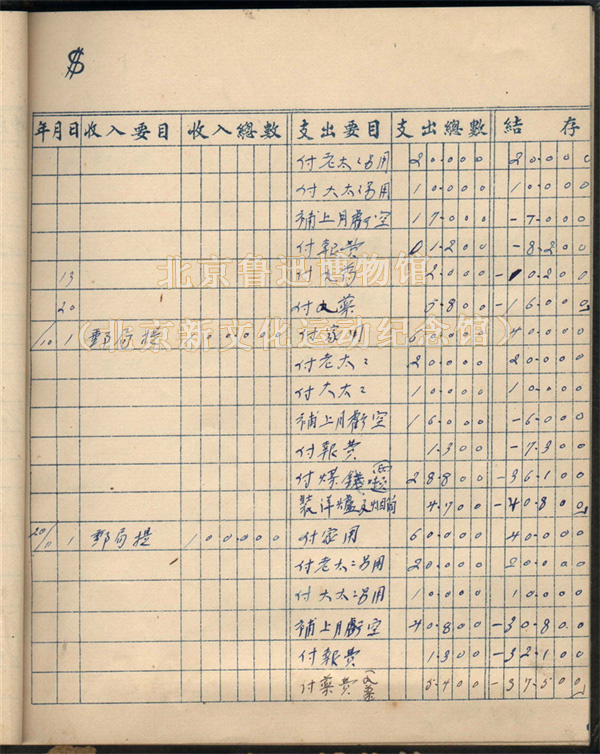 $
年月日 收入要目 收入總數 支出要目 支出總數 結存
付老太:另用 20.000 20.000
付大太:另用 10.000 10.000
補上月虧空 17.000 -7.000
付報費 1.200 -8.200
13 付 2.000 -10.200
20 付 藥 5.800 -16.000
北京鲁迅博物馆
(北京新文化运动纪念馆)
10/1 郵局提 100.000 付家用 60.000 40.000
付老太: 20.000 20.000
付大太: 10.000 10.000
補上月虧空 16.000 -6.000
付報費 1.300 -7.300
付煤 28.800 -36.100
裝洋爐及烟筒 4.700 -40.800
20/11 1 郵局提 100.000 付家用 60.000 40.000
付老太:另用 20.000 20.000
付大太:另用 10.000 10.000
補上月虧空 40.800 -30.800
付報費 1.300 -32.100
付藥費 5.400 -37.500